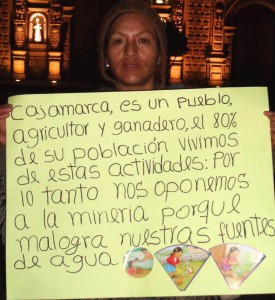 Cajamarca, es un pueblo,
agricultor y ganadero, el 80%
de su población vivimos
de estas actividades: Por
lo tanto nos oponemos
a la mineria porque
malogra nuestras fuentes
de agua.